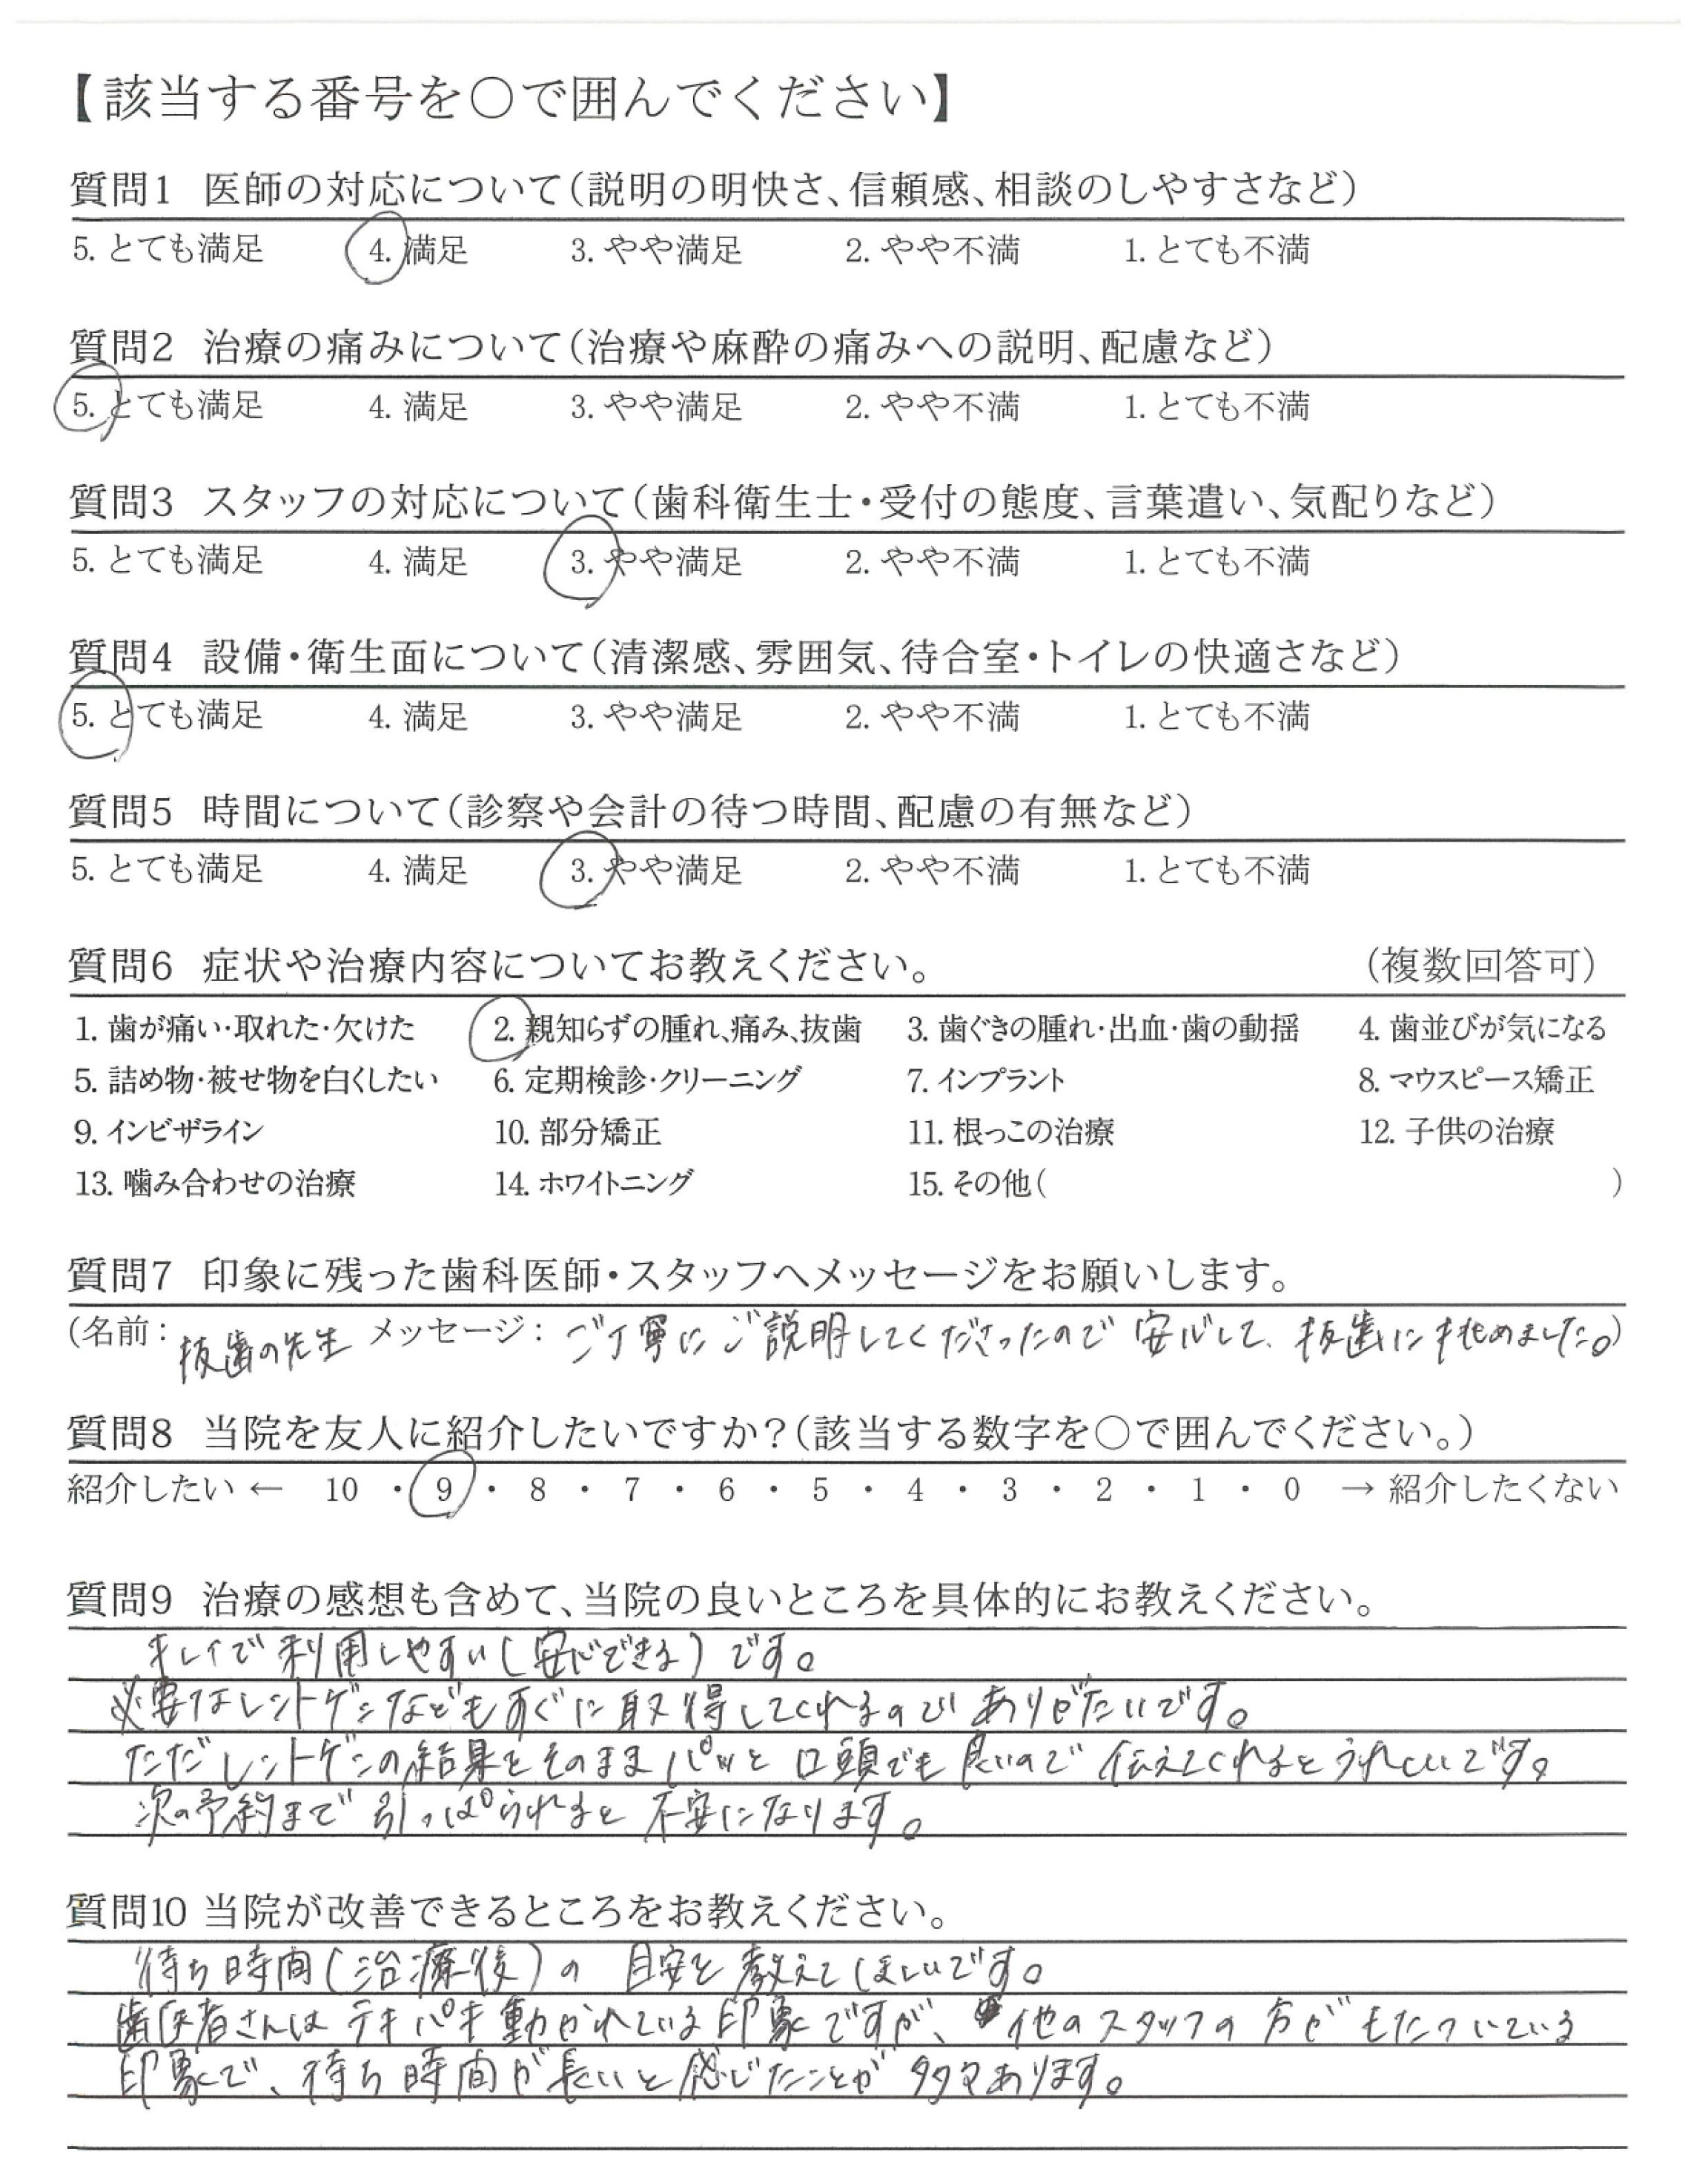 【該当する番号を○で囲んでください】
質問1 医師の対応について(説明の明快さ、信頼感、相談のしやすさなど)
5. とても満足 4. 満足 3. やや満足 2. やや不満 1. とても不満
質問2 治療の痛みについて(治療や麻酔の痛みへの説明、配慮など)
5. とても満足 4. 満足 3. やや満足 2. やや不満 1. とても不満
質問3 スタッフの対応について(歯科衛生士・受付の態度、言葉遣い、気配りなど)
5. とても満足 4. 満足 3. やや満足 2. やや不満 1. とても不満
質問4 設備・衛生面について(清潔感、雰囲気、待合室・トイレの快適さなど)
5. とても満足 4. 満足 3. やや満足 2. やや不満 1. とても不満
質問5 時間について(診察や会計の待つ時間、配慮の有無など)
5. とても満足 4. 満足 3. やや満足 2. やや不満 1. とても不満
質問6 症状や治療内容についてお教えください。 (複数回答可)
1. 歯が痛い・取れた・欠けた 2. 親知らずの腫れ、痛み、抜歯 3. 歯ぐきの腫れ・出血・歯の動揺 4. 歯並びが気になる
5. 詰め物・被せ物を白くしたい 6. 定期検診・クリーニング 7. インプラント 8. マウスピース矯正
9. インビザライン 10. 部分矯正 11. 根っこの治療 12. 子供の治療
13. 噛み合わせの治療 14. ホワイトニング 15. その他( )
質問7 印象に残った歯科医師・スタッフへメッセージをお願いします。
(名前: 抜歯の先生 メッセージ: ご丁寧にご説明してくださったので安心して、抜歯に挑めました。)
質問8 当院を友人に紹介したいですか?(該当する数字を○で囲んでください。)
紹介したい ← 10 ・ 9 ・ 8 ・ 7 ・ 6 ・ 5 ・ 4 ・ 3 ・ 2 ・ 1 ・ 0 → 紹介したくない
質問9 治療の感想も含めて、当院の良いところを具体的にお教えください。
キレイで利用しやすい(安心できる)です。
必要なレントゲンなどもすぐに取得してくれるのでありがたいです。
ただレントゲンの結果をそのままパッと口頭でも良いので伝えてくれるとうれしいです。
次の予約まで引っぱられると不安になります。
質問10 当院が改善できるところをお教えください。
待ち時間(治療後)の目安を教えてほしいです。
歯医者さんはテキパキ動かれている印象ですが、他のスタッフの方がもたついている
印象で、待ち時間が長いと感じたことが多々あります。